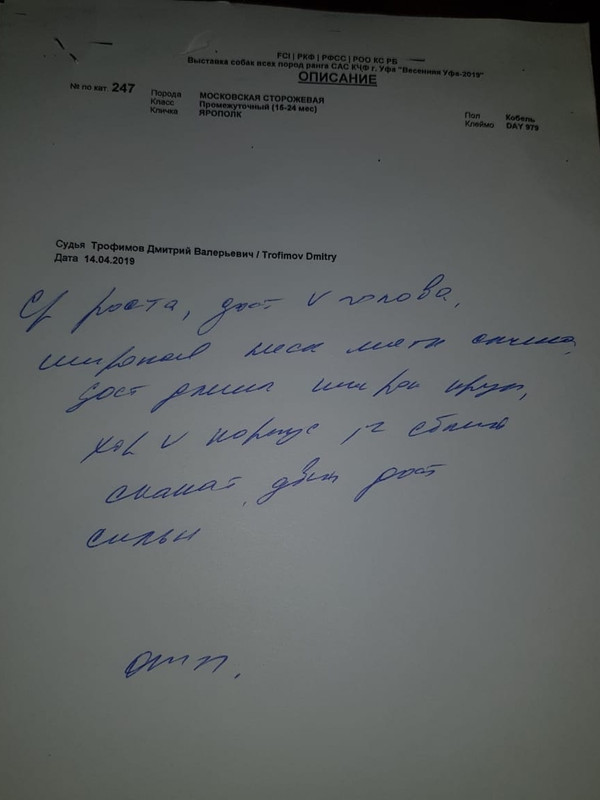 FCI | РКФ | РФСС | РОО КС РБ
Выставка собак всех пород ранга САС КЧФ г. Уфа "Весенняя Уфа-2019"
ОПИСАНИЕ
№ по кат. 247
Порода МОСКОВСКАЯ СТОРОЖЕВАЯ
Класс Промежуточный (15-24 мес)
Кличка ЯРОПОЛК
Пол Кобель
Клеймо DAY 979
Судья Трофимов Дмитрий Валерьевич / Trofimov Dmitry
Дата 14.04.2019
Ср роста, дост V голова,
широкая мягк спина,
дост длина круп,
хор V корпус сближ
скакат, движ дост
сильн
отл.